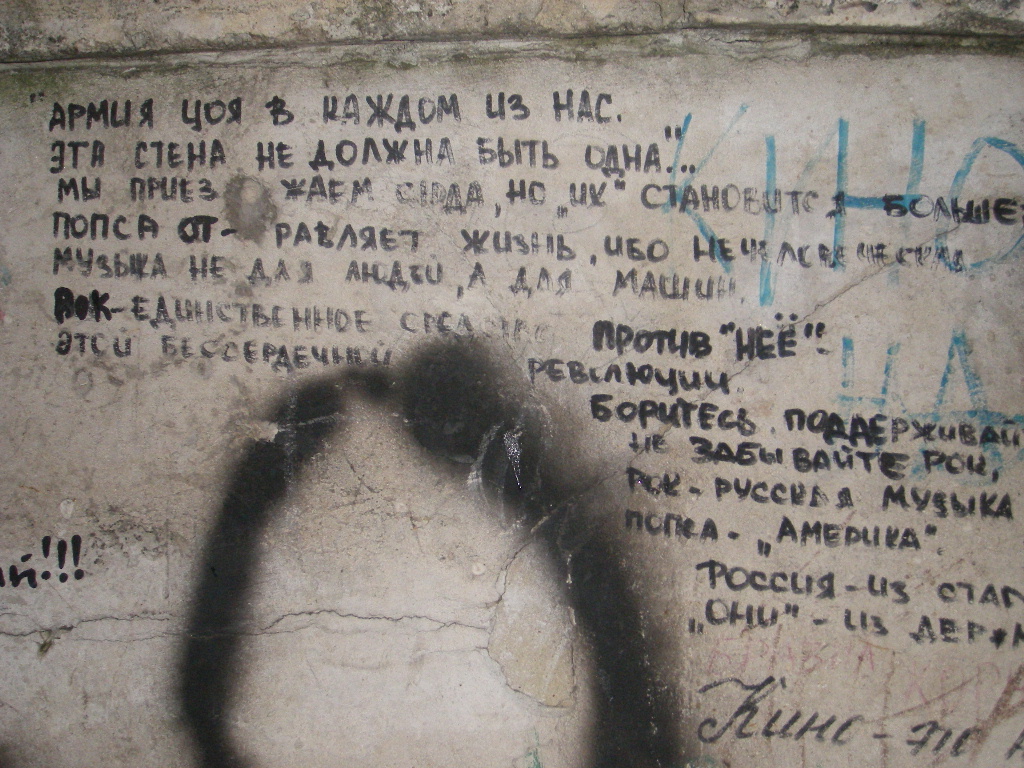 "АРМИЯ ЦОЯ В КАЖДОМ ИЗ НАС.
ЭТА СТЕНА НЕ ДОЛЖНА БЫТЬ ОДНА"...
МЫ ПРИЕЗ ЖАЕМ СЮДА, НО „ИХ" СТАНОВИТСЯ БОЛЬШЕ
ПОПСА ОТ- РАВЛЯЕТ ЖИЗНЬ, ИБО НЕЧЕЛОВЕЧЕСКАЯ
МУЗЫКА НЕ ДЛЯ ЛЮДЕЙ, А ДЛЯ МАШИН.
РОК-ЕДИНСТВЕННОЕ СРЕДСТВО ПРОТИВ "НЕЁ".
ЭТОЙ БЕССЕРДЕЧНОЙ РЕВОЛЮЦИИ.
БОРИТЕСЬ, ПОДДЕРЖИВАЙ
НЕ ЗАБЫВАЙТЕ РОК,
РОК - РУССКАЯ МУЗЫКА
ПОПСА - „АМЕРИКА".
РОССИЯ - ИЗ СТАЛ
„ОНИ" - ИЗ ДЕРЬМ
КИНО
ЦА
ИЙ!!!
Кино - это